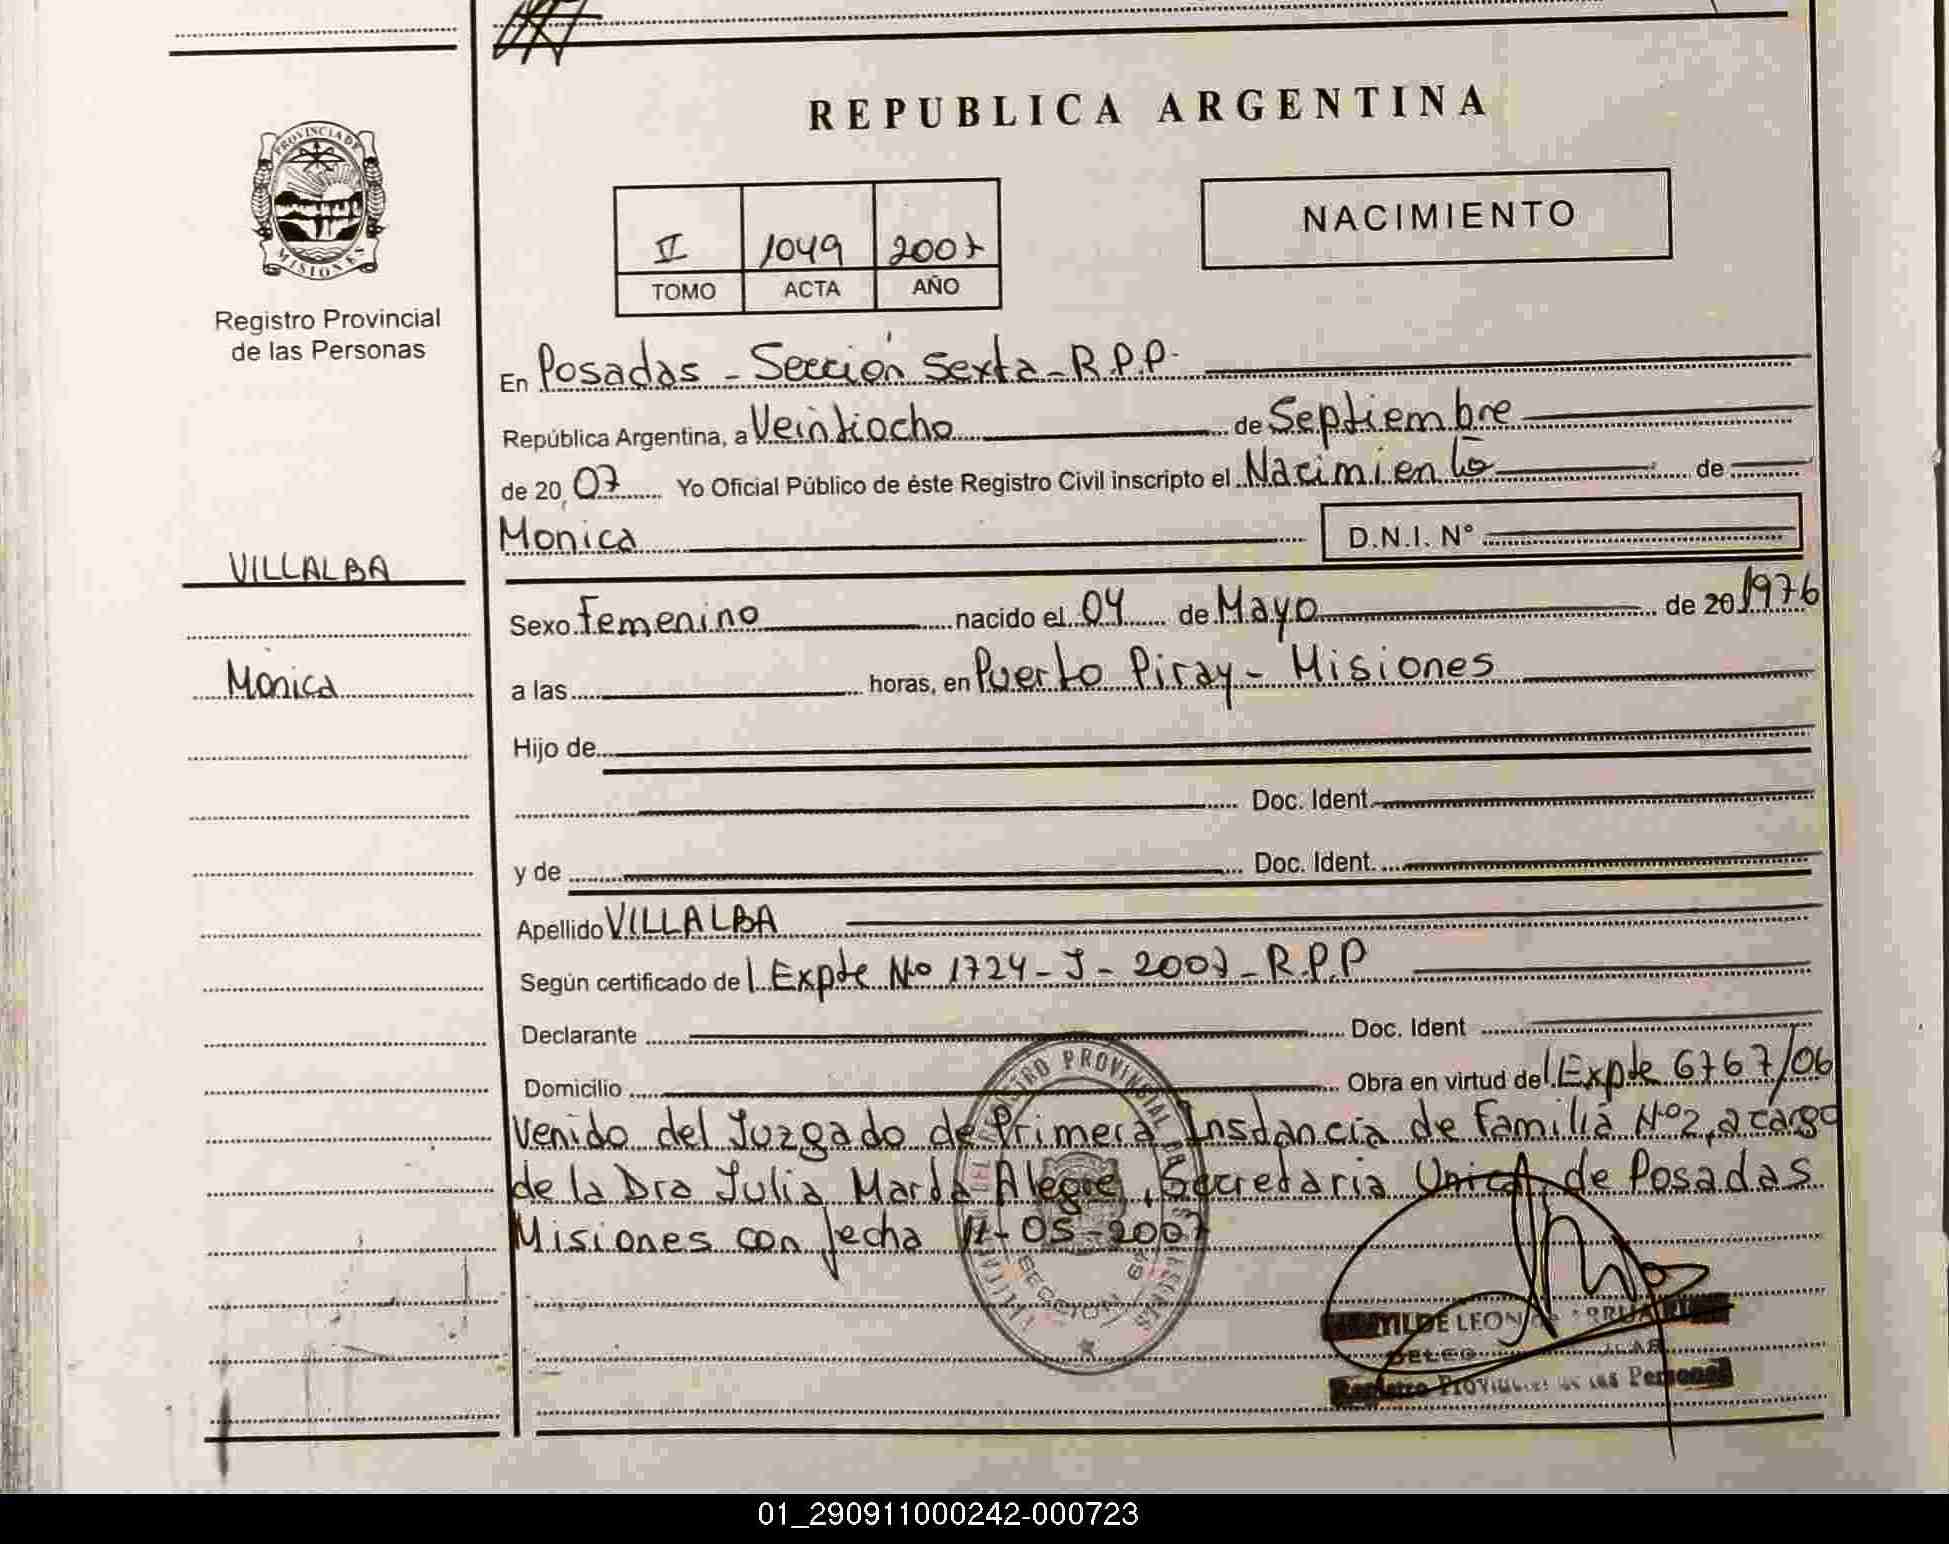 REPUBLICA ARGENTINA
PROVINCIA DE
MISIONES
Registro Provincial
de las Personas
NACIMIENTO
II 1049 2007
TOMO ACTA AÑO
En Posadas - Sección Sexta - R.P.P.
República Argentina, a Veintiocho de Septiembre
de 20 07 Yo Oficial Público de éste Registro Civil inscripto el Nacimiento de
Monica D.N.I. N°
VILLALBA
Sexo Femenino nacido el 04 de Mayo de 20 1976
Monica
a las horas, en Puerto Piray - Misiones
Hijo de
Doc. Ident.
y de Doc. Ident.
Apellido VILLALBA
Según certificado de l Expte No 1724 - J - 2007 - R.P.P
Declarante Doc. Ident
Domicilio Obra en virtud de l Expte 6767/06
Venido del Juzgado de Primera Instancia de Familia Nº2, a cargo
de la Dra Julia Marta Alegre, Secretaria Unica, de Posadas
Misiones con fecha 11-05-2007
REGISTRO PROVINCIAL
SECCION 6ª
LEON
Registro Provincial de las Personas
01_290911000242-000723